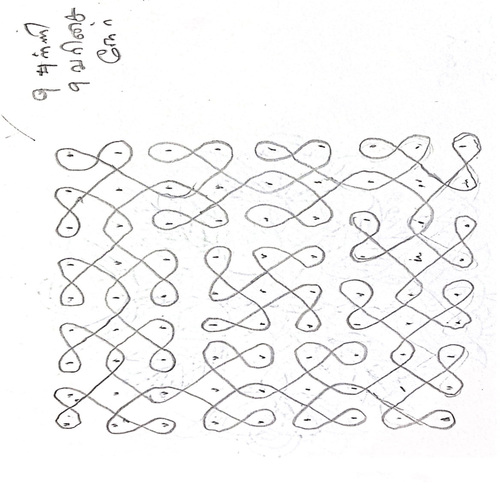 9 புள்ளி
9 வரிசை
நேர்